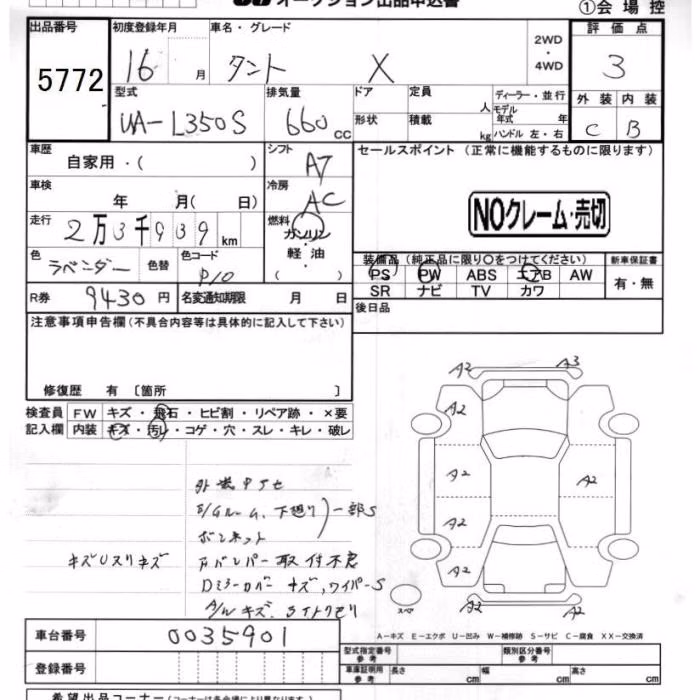 オークション出品申込書
①会場控
出品番号 初度登録年月 車名・グレード 2WD・4WD 評価点
5772 16 月 タント X 3
型式 排気量 ドア 定員 人 ディーラー・並行 外装 内装
UA-L350S 660 cc 形状 積載 kg モデル年式 年 ハンドル 左・右 C B
車歴 自家用・( ) シフト AT セールスポイント (正常に機能するものに限ります)
車検 年 月( 日) 冷房 AC
NOクレーム・売切
走行 2万3千939km 燃料 ガソリン・軽油 ( )
色 ラベンダー 色替 色コード P10
装備品 (純正品に限り○をつけてください) 新車保証書
PS PW ABS エアB AW 有・無
SR ナビ TV カワ
R券 9430円 名変通知期限 月 日 後日品
注意事項申告欄 (不具合内容等は具体的に記入して下さい)
修復歴 有 [箇所 ]
検査員 FW キズ・飛石・ヒビ割・リペア跡・×要
記入欄 内装 キズ・汚レ・コゲ・穴・スレ・キレ・破レ
A2 A3
A2
A2 A2
A2
A2 A2
A2 A2
スペア
外装
ルーム、下廻り 一部S
ボンネット
キズUスリキズ
バンパー取付不良
Dミラーカバーキズ、ワイパーS
A/Wキズ、ライトクモリ
A-キズ E-エクボ U-凹み W-補修跡 S-サビ C-腐食 XX-交換済
車台番号 0035901
型式指定番号 参考 類別区分番号 参考
登録番号 車庫証明用 参考 長さ cm 幅 cm 高さ cm
希望出品コーナー (コーナーは各会場により異なります。)